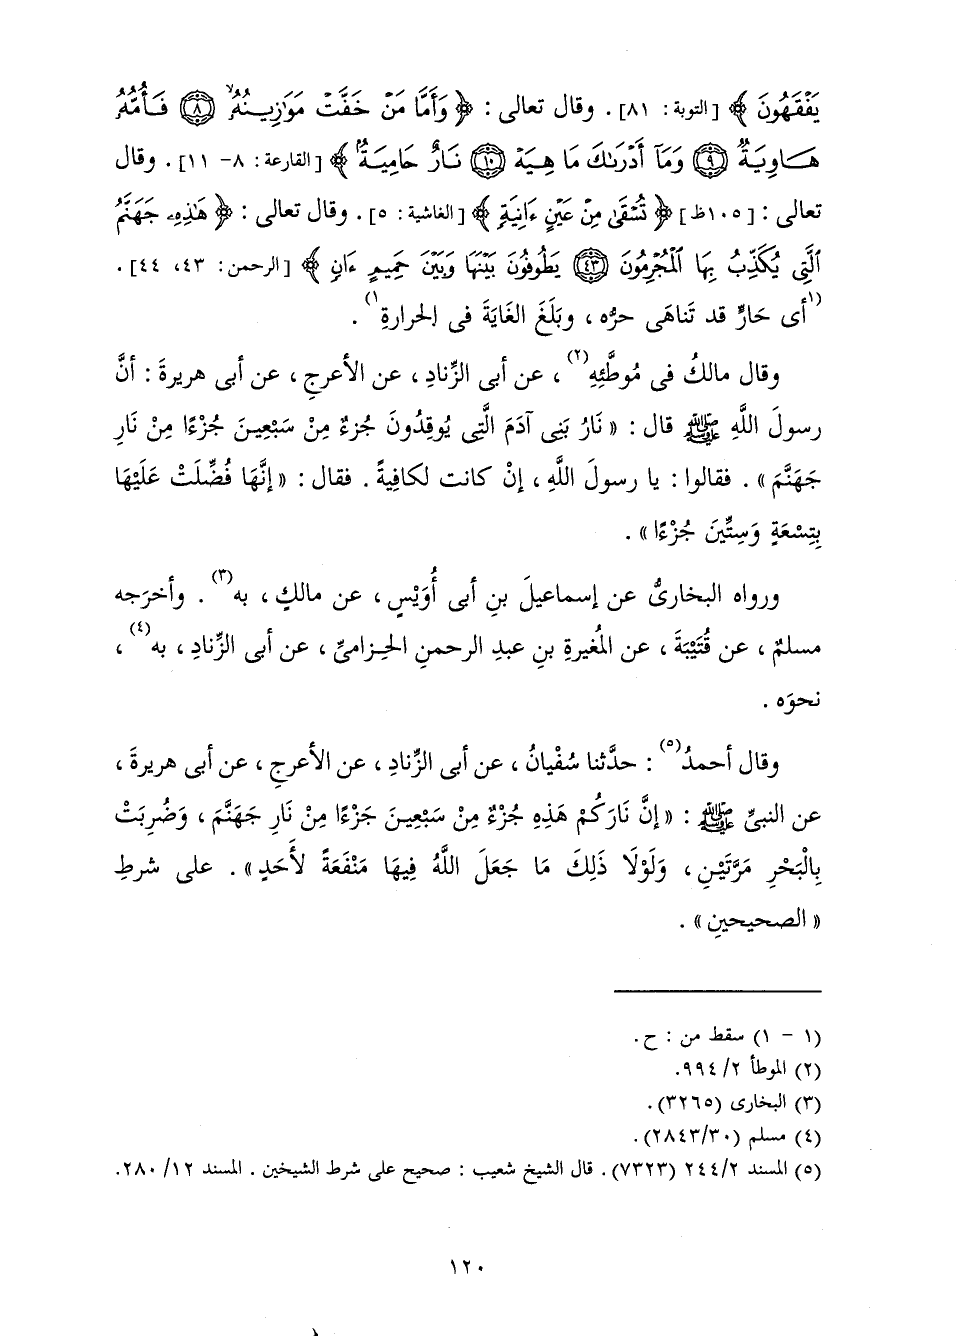 يَفْقَهُونَ ﴾ [التوبة: ٨١]. وقال تعالى: ﴿ وَأَمَّا مَنْ خَفَّتْ مَوَازِينُهُۥ ۝٨ فَأُمُّهُۥ
هَاوِيَةٌ ۝٩ وَمَآ أَدْرَىٰكَ مَا هِيَهْ ۝١٠ نَارٌ حَامِيَةٌۢ ﴾ [القارعة: ٨- ١١]. وقال
تعالى: [١٠٥ظ] ﴿ تُسْقَىٰ مِنْ عَيْنٍ ءَانِيَةٍ ﴾ [الغاشية: ٥]. وقال تعالى: ﴿ هَٰذِهِۦ جَهَنَّمُ
ٱلَّتِى يُكَذِّبُ بِهَا ٱلْمُجْرِمُونَ ۝٤٣ يَطُوفُونَ بَيْنَهَا وَبَيْنَ حَمِيمٍ ءَانٍ ﴾ [الرحمن: ٤٣، ٤٤].
(١أى حَارٍّ قد تَناهَى حرُّه، وبَلَغَ الغَايَةَ فى الحرارةِ١).
وقال مالكٌ فى مُوطَّئِهِ(٢)، عن أبى الزِّنادِ، عن الأعرجِ، عن أبى هريرةَ: أنَّ
رسولَ اللَّهِ ﷺ قال: « نَارُ بَنِى آدَمَ الَّتِى يُوقِدُونَ جُزءٌ مِنْ سَبْعِينَ جُزْءًا مِنْ نَارِ
جَهَنَّمَ ». فقالوا: يا رسولَ اللَّهِ، إنْ كانت لكافِيةً. فقال: « إنَّهَا فُضِّلَتْ عَلَيْهَا
بِتِسْعَةٍ وَسِتِّينَ جُزْءًا ».
ورواه البخارىُّ عن إسماعيلَ بنِ أبى أُوَيْسٍ، عن مالكٍ، به(٣). وأخرَجه
مسلمٌ، عن قُتَيْبَةَ، عن المُغيرةِ بنِ عبدِ الرحمنِ الحِزامىِّ، عن أبى الزِّنادِ، به(٤)،
نحوَه.
وقال أحمدُ(٥): حدَّثنا سُفْيانُ، عن أبى الزِّنادِ، عن الأعرجِ، عن أبى هريرةَ،
عن النبىِّ ﷺ: « إنَّ نَارَكُمْ هَذِهِ جُزْءٌ مِنْ سَبْعِينَ جَزْءًا مِنْ نَارِ جَهَنَّمَ، وَضُرِبَتْ
بِالْبَحْرِ مَرَّتَيْنِ، وَلَوْلَا ذَلِكَ مَا جَعَلَ اللَّهُ فِيهَا مَنْفَعَةً لأَحَدٍ ». على شرطِ
« الصحيحينِ ».
(١ - ١) سقط من: ح.
(٢) الموطأ ٢/ ٩٩٤.
(٣) البخارى (٣٢٦٥).
(٤) مسلم (٢٨٤٣/٣٠).
(٥) المسند ٢٤٤/٢ (٧٣٢٣). قال الشيخ شعيب: صحيح على شرط الشيخين. المسند ١٢/ ٢٨٠.
١٢٠